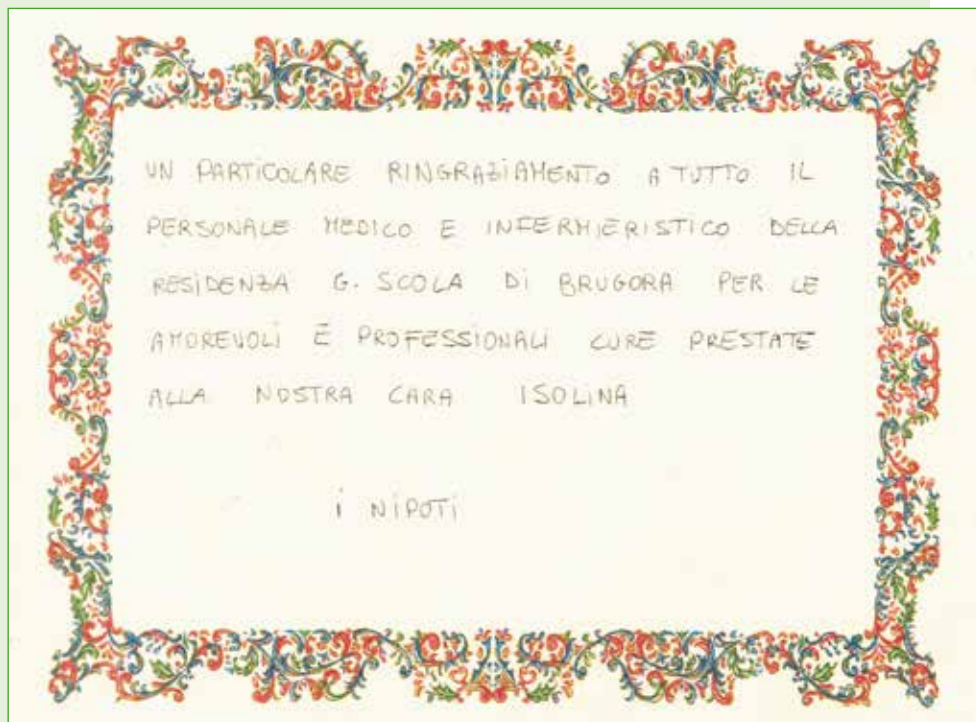 UN PARTICOLARE RINGRAZIAMENTO A TUTTO IL
PERSONALE MEDICO E INFERMIERISTICO DELLA
RESIDENZA G. SCOLA Di BRUGORA PER LE
AMOREVOLi E PROFESSIONALI CURE PRESTATE
ALLA NOSTRA CARA ISOLINA
i NiPOTi